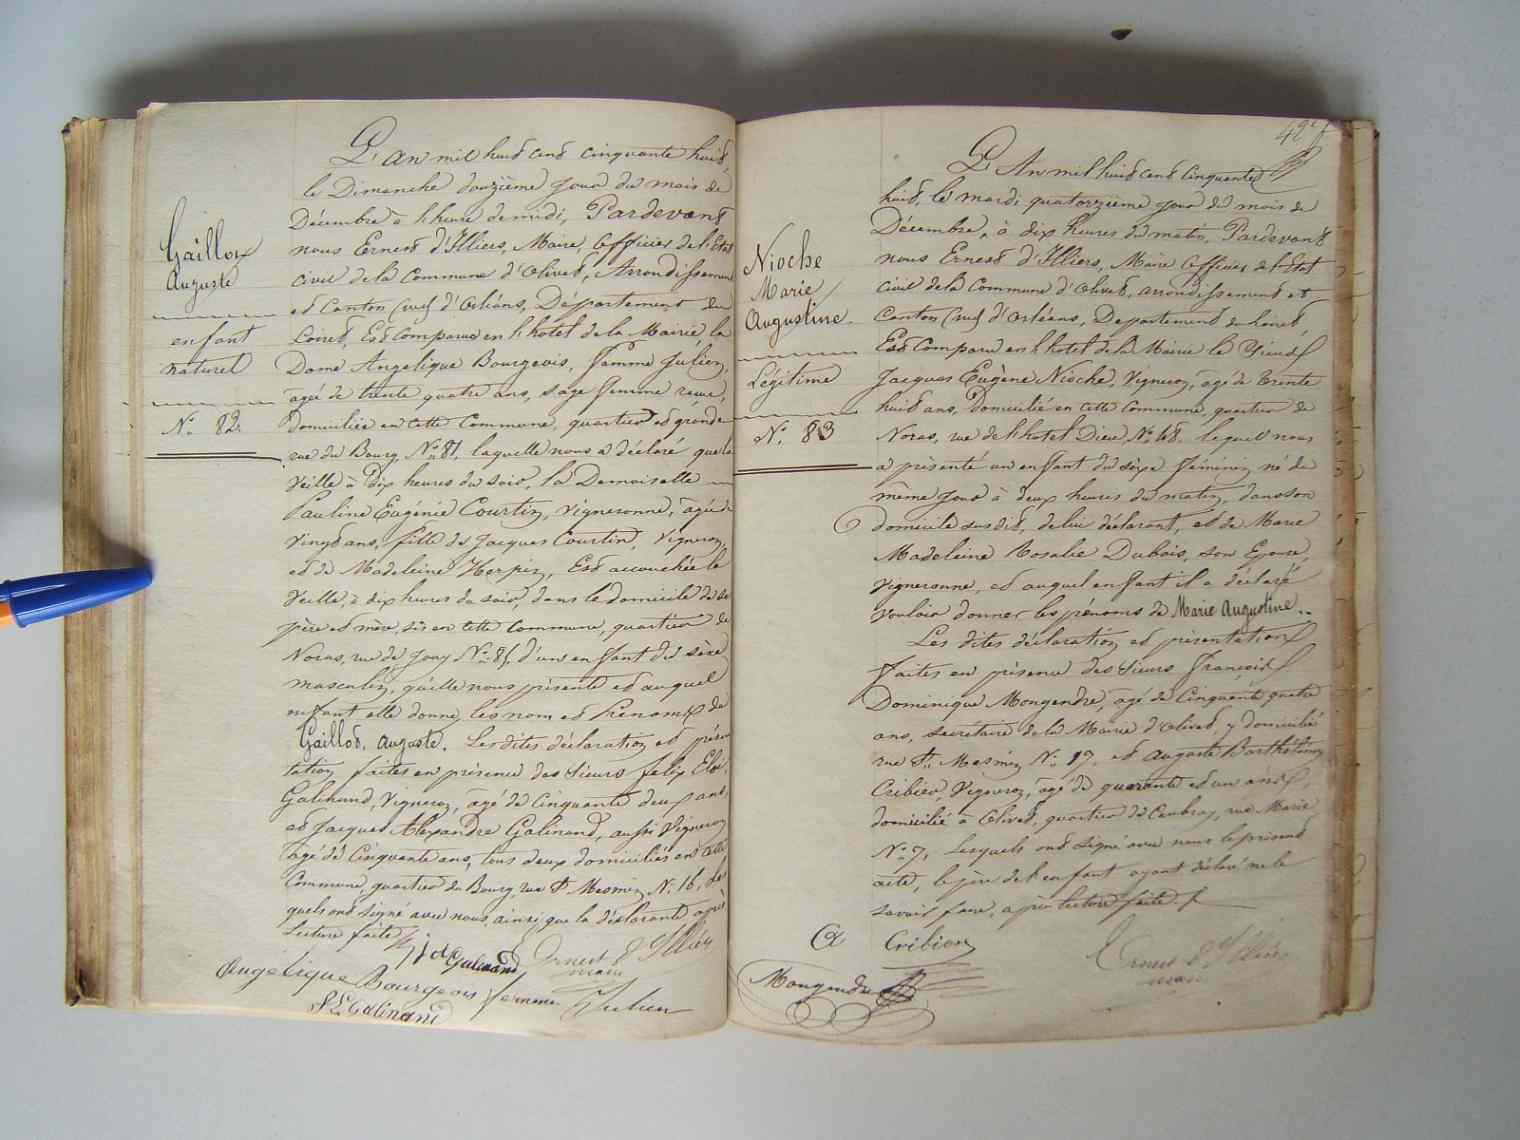 Gaillot
Auguste
enfant
naturel
N° 82.
L'an mil huit cent cinquante huit,
le Dimanche douzième jour du mois de
Décembre à l'heure de midi, Pardevant
nous Ernest d'Illiers, Maire, Officier de l'Etat
civil de la Commune d'Olivet, Arrondissement
et Canton (sud) d'Orléans, Département du
Loiret, Est Comparue en l'hôtel de la Mairie la
Dame Angélique Bourgeois, femme Julien,
agée de trente quatre ans, sage femme reçue,
domiciliée en cette Commune, quartier et grande
rue du Bourg N° 81, laquelle nous a déclaré que la
Veille à dix heures du soir, la Demoiselle
Pauline Eugénie Courtin, vigneronne, agée de
Vingt ans, fille de Jacques Courtin, Vigneron,
et de Madeleine Herpin, Est accouchée le
Veille, à dix heures du soir, dans le domicile de ses
père et mère, sis en cette Commune, quartier de
Noras, rue de Jouy N° 85, d'un enfant du sèxe
masculin, qu'elle nous présente et auquel
enfant elle donne les nom et Prénoms de
Gaillot, Auguste. Les dites déclaration et présen
tation faites en présence des Sieurs felix Eloi
Galinand, Vigneron, agé de Cinquante deux ans,
et Jacques Alexandre Galinand, aussi Vigneron
agé de Cinquante ans, tous deux domiciliés en cette
Commune, quartier du Bourg, rue St Mesmin N° 16, Les
quels ont signé avec nous, ainsi que la déclarante après
Lecture faite
J A Galinand Ernest d'Illiers
maire
Angelique Bourgeois femme Julien
F E Galinand
42e
Nioche
Marie
Augustine.
Légitime
N° 83
L'An mil huit cent cinquante
huit, le mardi quatorzième jour du mois de
Décembre, à dix heures du matin, Pardevant
nous Ernest d'Illiers, Maire Officier de l'Etat
civil de la Commune d'Olivet, arrondissement et
Canton (sud) d'Orléans, Département du Loiret,
Est Comparu en l'hôtel de la Mairie le Sieur
Jacques Eugène Nioche, Vigneron, agé de trente
huit ans, Domicilié en cette Commune, quartier de
Noras, rue de l'hôtel Dieu N° 48, lequel nous
a présenté un enfant du sèxe féminin, né du
même jour à deux heures du matin, dans son
domicile susdit, de lui déclarant, et de Marie
Madeleine Rosalie Dubois, son Epouse,
Vigneronne, et auquel enfant il a déclaré
vouloir donner les prénoms de Marie Augustine.
Les dites déclaration et présentation
faites en présence des Sieurs François
Dominique Mongendre, agé de Cinquante quatre
ans, secrétaire de la Mairie d'Olivet, y domicilié
rue St Mesmin N° 17, et Auguste Barthélemy
Cribier, Vigneron, agé de quarante et un ans,
domicilié à Olivet, quartier de Cambray, rue Marie
N° 7, Lesquels ont signé avec nous le présent
acte, le père de l'enfant ayant déclaré ne le
savoir faire, après lecture faite.
A Cribier
Ernest d'Illiers
maire
Mongendre